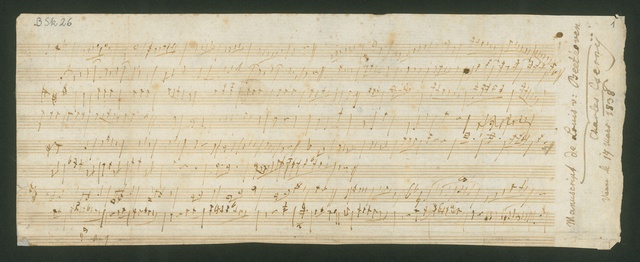 BSk 26
1
Manuscript de Louis v. Beethoven
Charles Czerny
le 19 mars 1838